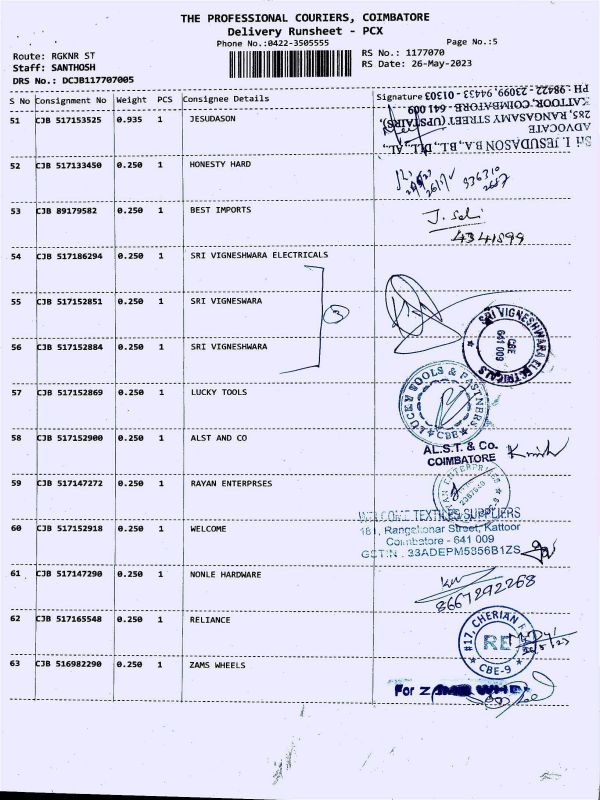 THE PROFESSIONAL COURIERS, COIMBATORE
Delivery Runsheet - PCX
Phone No.:0422-3505555 Page No.:5
Route: RGKNR ST RS No.: 1177070
Staff: SANTHOSH RS Date: 26-May-2023
DRS No.: DCJB117707005
S No Consignment No Weight PCS Consignee Details Signature
51 CJB 517153525 0.935 1 JESUDASON
Sri I. JESUDASON B.A., B.L., DLL., AL.,
ADVOCATE
285, RANGASAMY STREET (UPSTAIRS),
KATTOOR, COIMBATORE - 641 009
PH : 98422 - 23099, 94433 - 01303
52 CJB 517133450 0.250 1 HONESTY HARD
53 CJB 89179582 0.250 1 BEST IMPORTS
4341899
54 CJB 517186294 0.250 1 SRI VIGNESHWARA ELECTRICALS
55 CJB 517152851 0.250 1 SRI VIGNESWARA
3
SRI VIGNESHWARA ELECTRICALS
CBE
641 009
56 CJB 517152884 0.250 1 SRI VIGNESHWARA
57 CJB 517152869 0.250 1 LUCKY TOOLS
LUCKY TOOLS & PARTNERS
CBE
58 CJB 517152900 0.250 1 ALST AND CO
AL.S.T. & Co.
COIMBATORE
59 CJB 517147272 0.250 1 RAYAN ENTERPRSES
60 CJB 517152918 0.250 1 WELCOME
WELCOME TEXTILES SUPPLIERS
181, Rangakonar Street, Kattoor
Coimbatore - 641 009
GSTIN : 33ADEPM5356B1ZS
61 CJB 517147290 0.250 1 NONLE HARDWARE
8667292268
62 CJB 517165548 0.250 1 RELIANCE
#17, CHERIAN
RE
CBE-9
63 CJB 516982290 0.250 1 ZAMS WHEELS
For ZAMS WHE